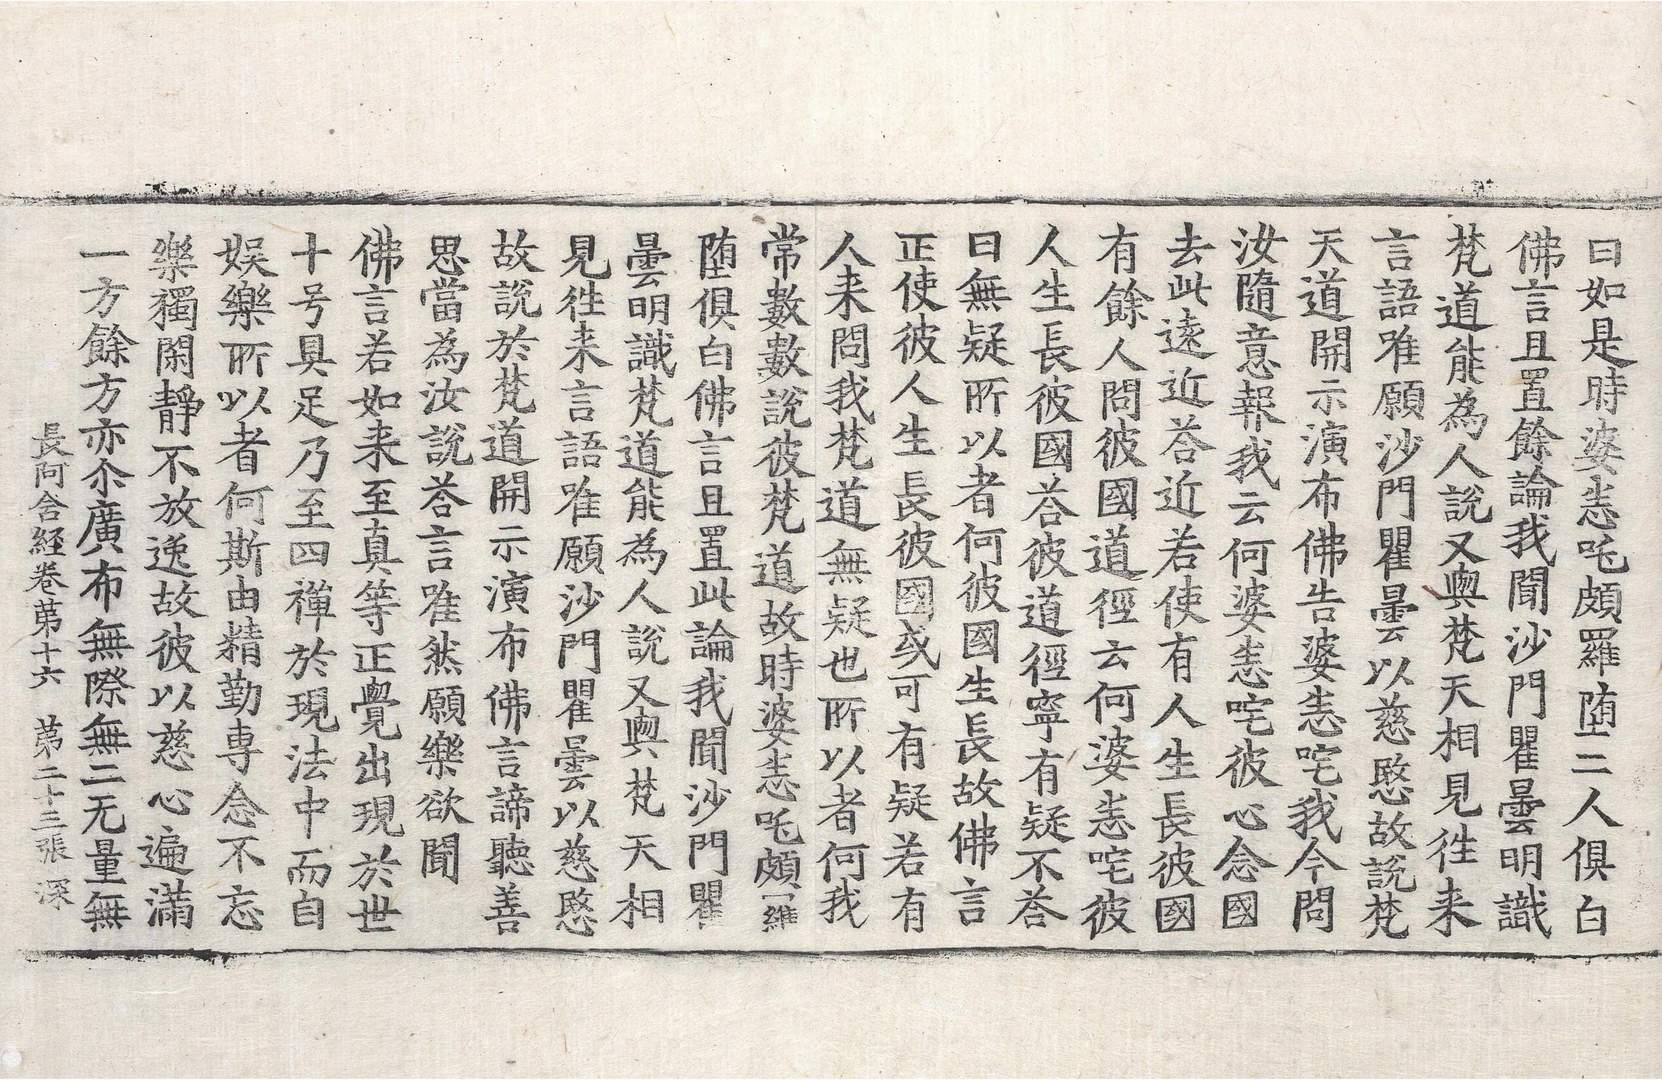 曰如是時婆悉吒頗羅堕二人俱白
佛言且置餘論我聞沙門瞿曇明識
梵道能為人說又與梵天相見往来
言語唯願沙門瞿曇以慈愍故說梵
天道開示演布佛告婆悉咤我今問
汝隨意報我云何婆悉咤彼心念國
去此遠近荅近若使有人生長彼國
有餘人問彼國道徑云何婆悉咤彼
人生長彼國荅彼道徑寧有疑不荅
曰無疑所以者何彼國生長故佛言
正使彼人生長彼國或可有疑若有
人来問我梵道無疑也所以者何我
常數數說彼梵道故時婆悉吒頗羅
堕俱白佛言且置此論我聞沙門瞿
曇明識梵道能為人說又與梵天相
見往来言語唯願沙門瞿曇以慈愍
故說於梵道開示演布佛言諦聽善
思當為汝說荅言唯然願樂欲聞
佛言若如来至真等正覺出現於世
十号具足乃至四禪於現法中而自
娛樂所以者何斯由精勤専念不忘
樂獨閑靜不放逸故彼以慈心遍滿
一方餘方亦尒廣布無際無二无量無
長阿含経卷苐十六 苐二十三張 深